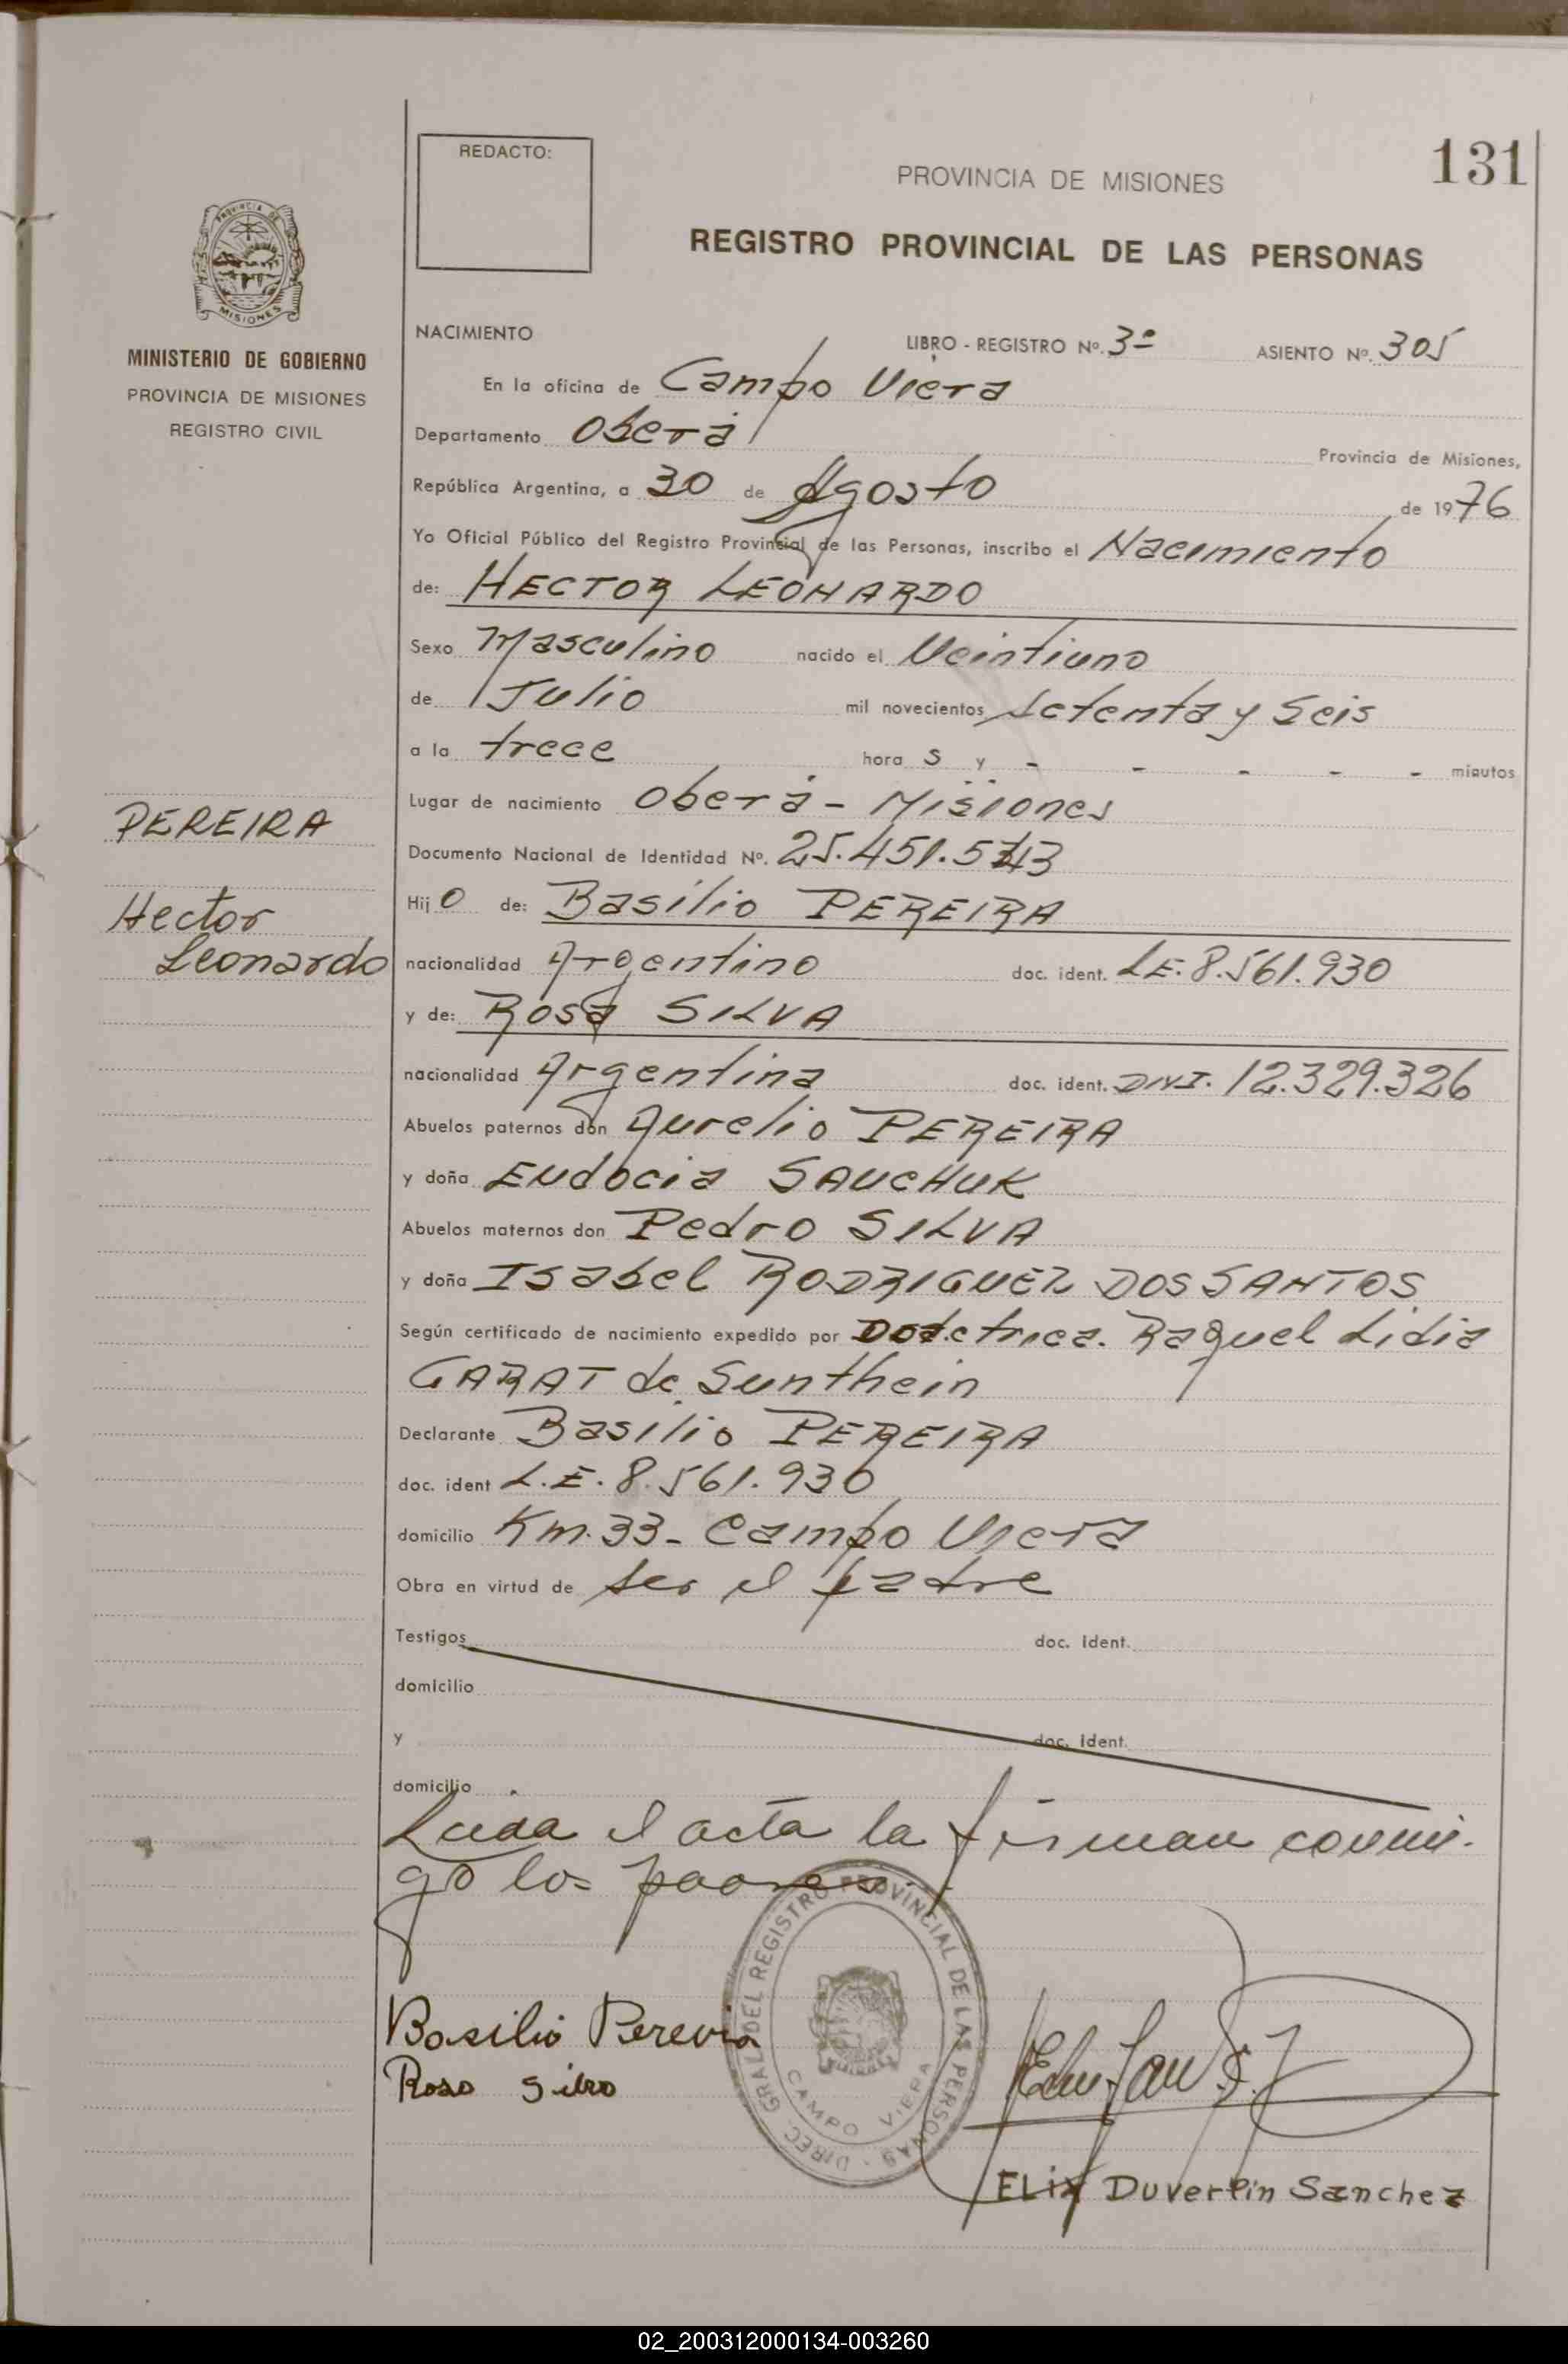 131
REDACTO:
PROVINCIA DE MISIONES
REGISTRO PROVINCIAL DE LAS PERSONAS
PROVINCIA DE
MISIONES
MINISTERIO DE GOBIERNO
PROVINCIA DE MISIONES
REGISTRO CIVIL
PEREIRA
Hector
Leonardo
NACIMIENTO LIBRO - REGISTRO Nº. 3º ASIENTO Nº. 305
En la oficina de Campo Viera
Departamento Oberá Provincia de Misiones,
República Argentina, a 30 de Agosto de 1976
Yo Oficial Público del Registro Provincial de las Personas, inscribo el Nacimiento
de: HECTOR LEONARDO
Sexo Masculino nacido el Veintiuno
de Julio mil novecientos Setenta y Seis
a la trece hora s y - - - - - minutos
Lugar de nacimiento Oberá - Misiones
Documento Nacional de Identidad Nº. 25.451.
Hijo de: Basilio PEREIRA
nacionalidad Argentino doc. ident. L.E. 8.561.930
y de: Rosa SILVA
nacionalidad Argentina doc. ident. DNI. 12.329.326
Abuelos paternos don Aurelio PEREIRA
y doña Eudocia SAUCHUK
Abuelos maternos don Pedro SILVA
y doña Isabel RODRIGUEZ DOS SANTOS
Según certificado de nacimiento expedido por Raquel Lidia
GARAT de Sunthein
Declarante Basilio PEREIRA
doc. ident L.E. 8.561.930
domicilio Km. 33 - Campo Viera
Obra en virtud de ser el padre
Testigos doc. ident.
domicilio
y doc. ident.
domicilio
Leida el acta la firman conmi-
go los padres.
Basilio Pereira
Rosa Silva
DIREC. GRAL. DEL REGISTRO PROVINCIAL DE LAS PERSONAS
CAMPO VIERA
ELix Duverlin Sanchez
02_200312000134-003260